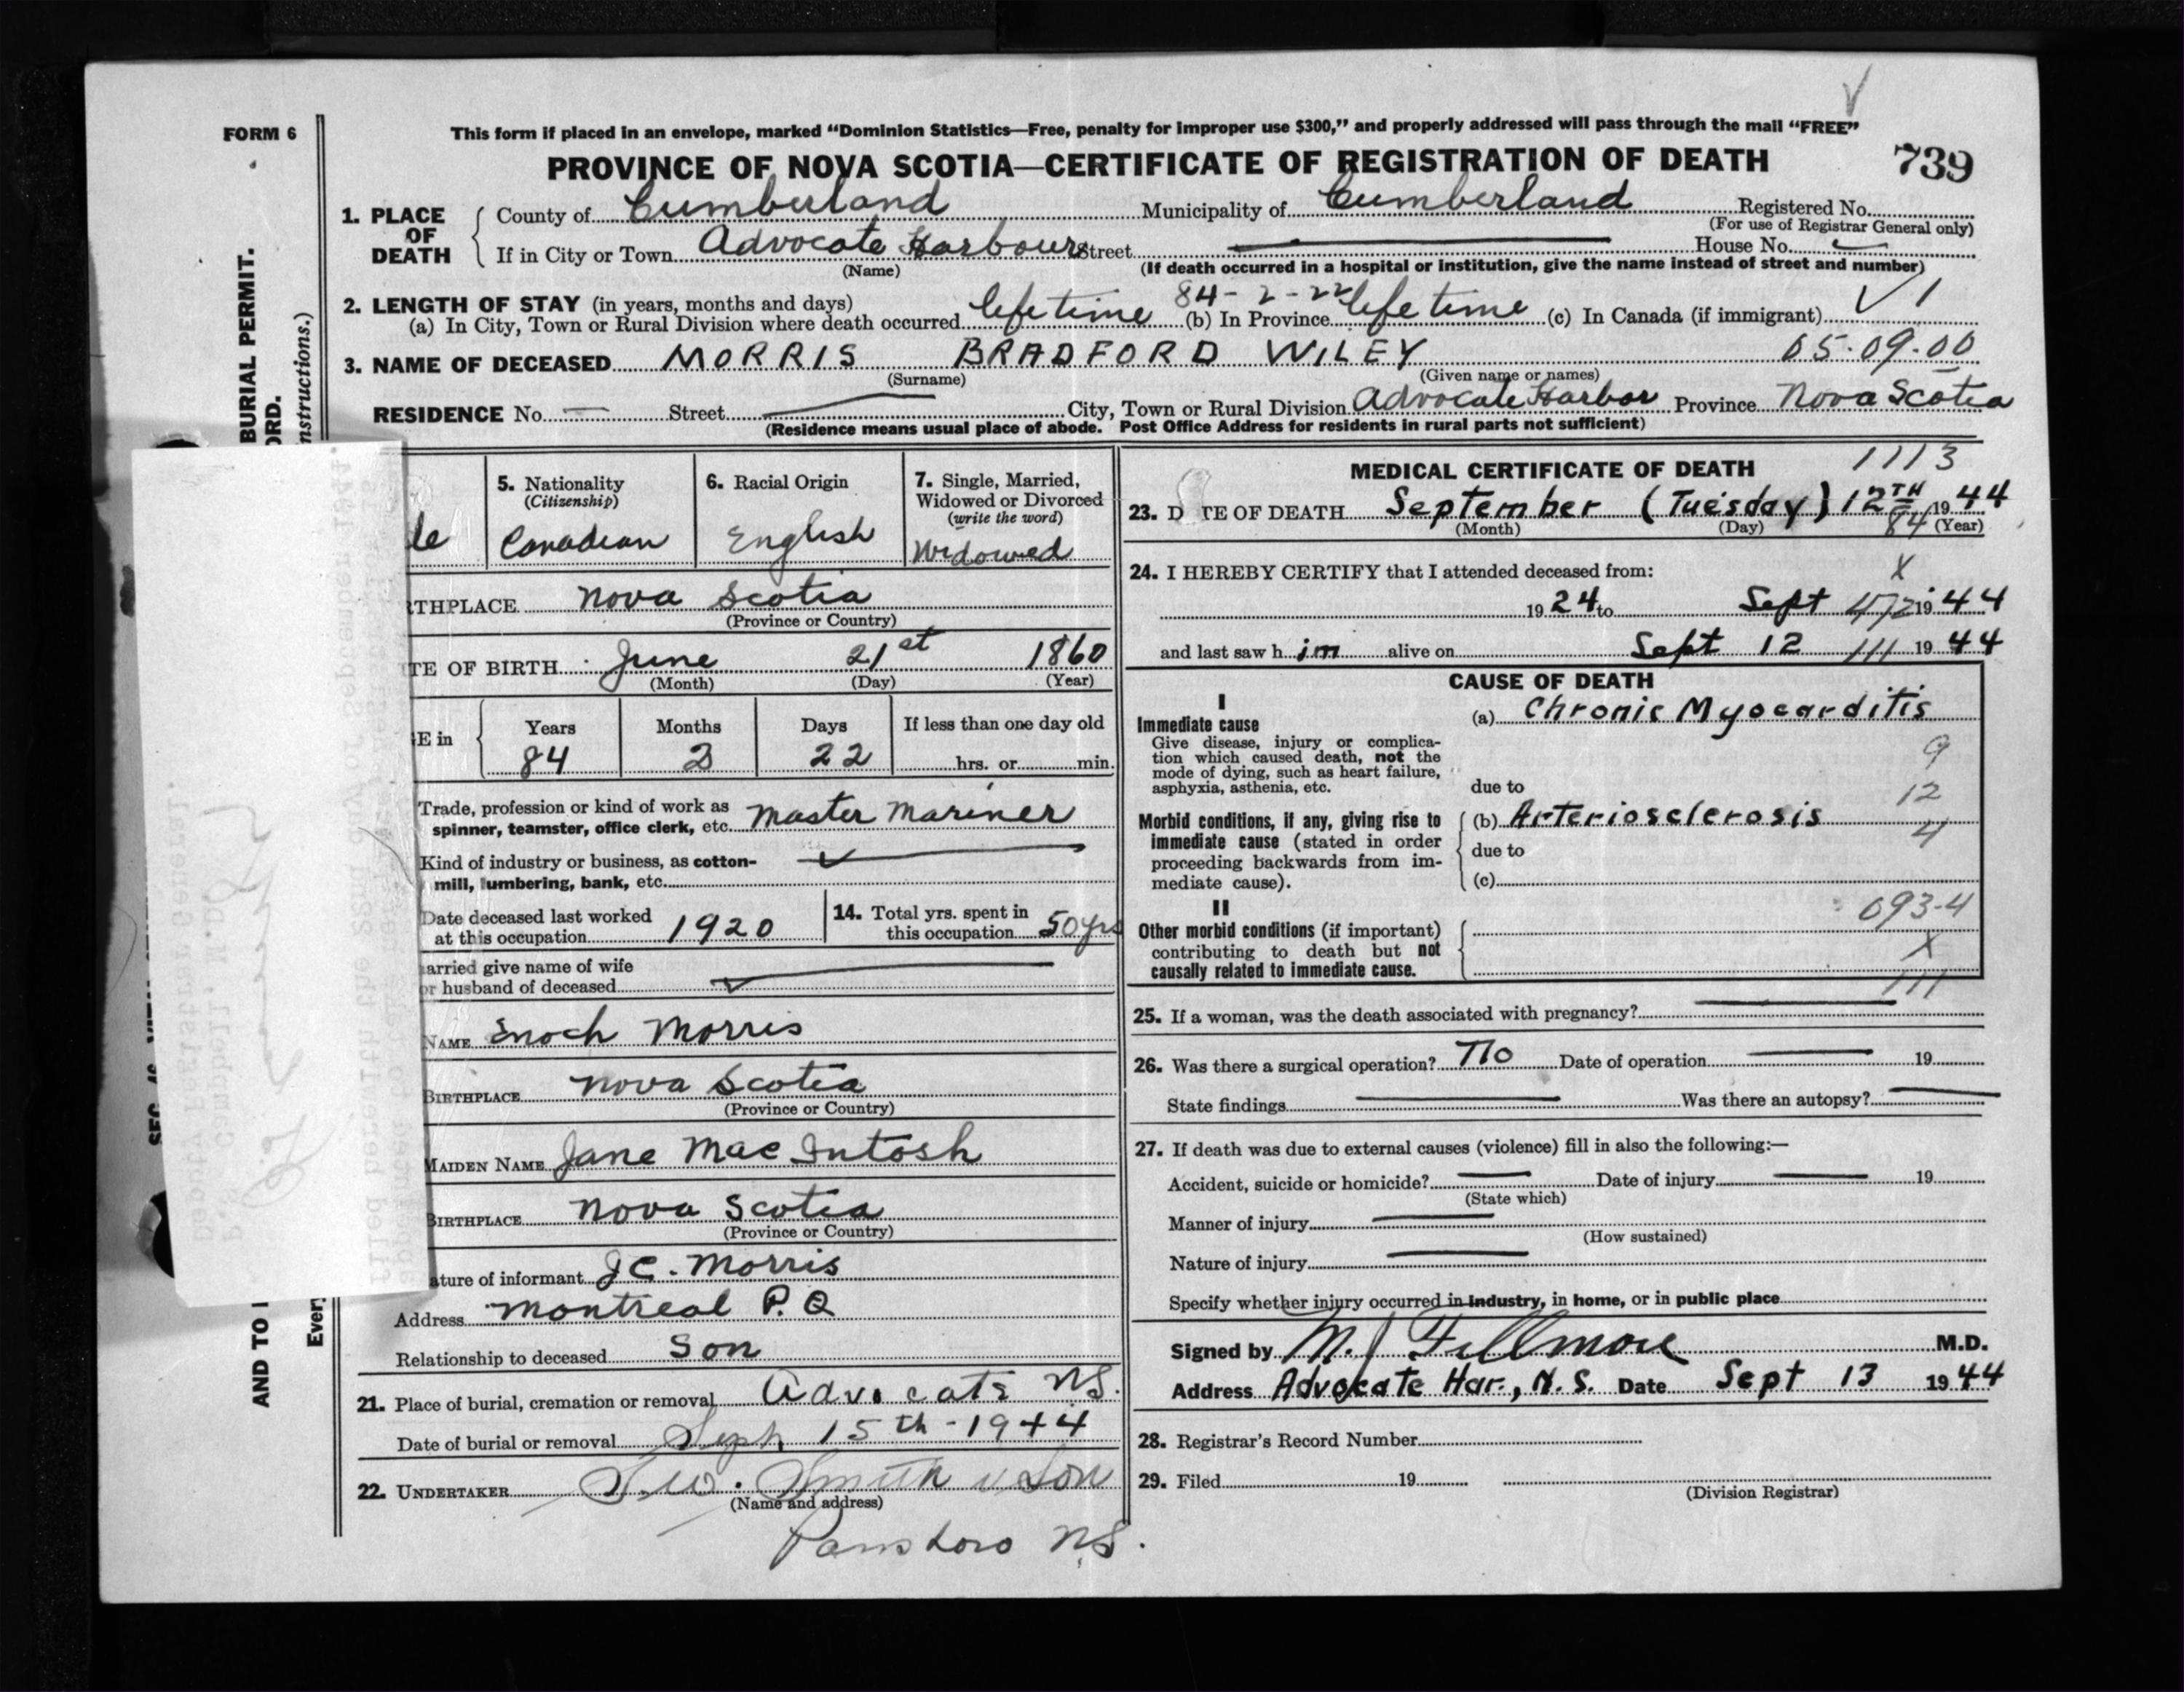 FORM 6
This form if placed in an envelope, marked “Dominion Statistics—Free, penalty for improper use $300,” and properly addressed will pass through the mail “FREE”
PROVINCE OF NOVA SCOTIA—CERTIFICATE OF REGISTRATION OF DEATH 739
1. PLACE OF DEATH County of Cumberland Municipality of Cumberland Registered No.
(For use of Registrar General only)
If in City or Town Advocate Harbour Street House No.
(Name) (If death occurred in a hospital or institution, give the name instead of street and number)
2. LENGTH OF STAY (in years, months and days) 84-2-22
(a) In City, Town or Rural Division where death occurred life time (b) In Province life time (c) In Canada (if immigrant) 1
3. NAME OF DECEASED MORRIS BRADFORD WILEY 05.09.00
(Surname) (Given name or names)
RESIDENCE No. Street City, Town or Rural Division Advocate Harbor Province Nova Scotia
(Residence means usual place of abode. Post Office Address for residents in rural parts not sufficient)
BURIAL PERMIT.
ORD.
nstructions.)
AND TO
Every
le
5. Nationality
(Citizenship)
Canadian
6. Racial Origin
English
7. Single, Married,
Widowed or Divorced
(write the word)
Widowed
THPLACE Nova Scotia
(Province or Country)
TE OF BIRTH June 21st 1860
(Month) (Day) (Year)
E in Years Months Days If less than one day old
84 2 22 hrs. or min.
Trade, profession or kind of work as
spinner, teamster, office clerk, etc. Master Mariner
Kind of industry or business, as cotton-
mill, lumbering, bank, etc.
Date deceased last worked
at this occupation 1920
14. Total yrs. spent in
this occupation 50 yrs
arried give name of wife
or husband of deceased
NAME Enoch Morris
BIRTHPLACE Nova Scotia
(Province or Country)
MAIDEN NAME Jane MacIntosh
BIRTHPLACE Nova Scotia
(Province or Country)
ature of informant J C. Morris
Address Montreal P.Q
Relationship to deceased Son
21. Place of burial, cremation or removal Advocate N.S.
Date of burial or removal Sept 15th-1944
22. UNDERTAKER Smith & Son
(Name and address)
Parrsboro N.S.
MEDICAL CERTIFICATE OF DEATH 1113
23. D TE OF DEATH September (Tuesday) 12TH 1944
(Month) (Day) 84 (Year)
24. I HEREBY CERTIFY that I attended deceased from: X
1924 to Sept 1944
and last saw him alive on Sept 12 111 1944
CAUSE OF DEATH
I
Immediate cause
Give disease, injury or complica-
tion which caused death, not the
mode of dying, such as heart failure,
asphyxia, asthenia, etc.
(a) Chronic Myocarditis
9
due to
12
Morbid conditions, if any, giving rise to
immediate cause (stated in order
proceeding backwards from im-
mediate cause).
(b) Arteriosclerosis
4
due to
(c)
II
093-4
Other morbid conditions (if important)
contributing to death but not
causally related to immediate cause.
X
111
25. If a woman, was the death associated with pregnancy?
26. Was there a surgical operation? No Date of operation 19
State findings Was there an autopsy?
27. If death was due to external causes (violence) fill in also the following:—
Accident, suicide or homicide? Date of injury 19
(State which)
Manner of injury
(How sustained)
Nature of injury
Specify whether injury occurred in industry, in home, or in public place
Signed by M. J Fillmore M.D.
Address Advocate Har., N.S. Date Sept 13 1944
28. Registrar’s Record Number
29. Filed 19
(Division Registrar)